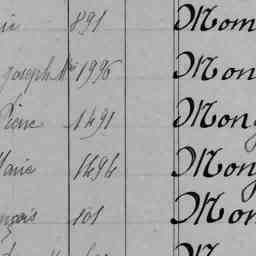 891 Mom
Joseph Mie 1996 Mon
Pierre 1491 Mong
Marie 1494 Mong
101 Mon